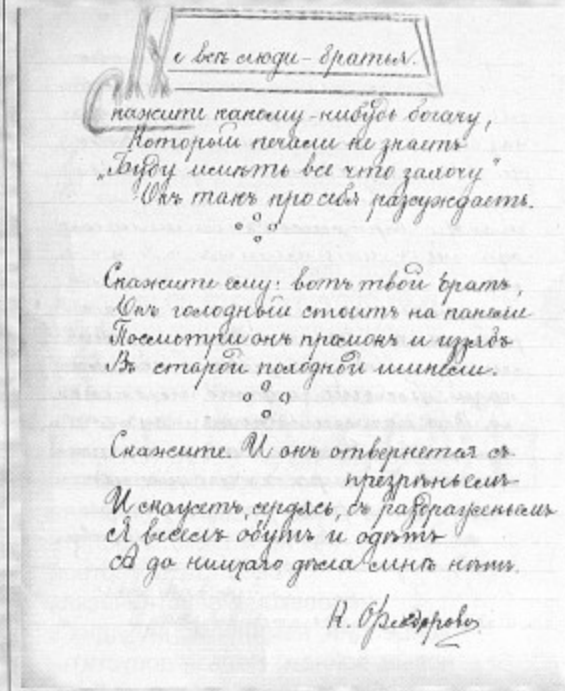 Не всѣ люди – братья.
Скажите какому-нибудь богачу,
Который печали не знаетъ
„Буду имѣть все что захочу"
Онъ такъ про себя разсуждаетъ.
Скажите ему: вотъ твой братъ,
Онъ голодный стоитъ на панели
Посмотри онъ промокъ и изябъ
Въ старой холодной шинели.
Скажите. И онъ отвернется съ
презрѣньемъ
И скажетъ, сердясь, съ раздраженьемъ
Я веселъ обутъ и одѣтъ
А до нищаго дѣла мнѣ нѣтъ.